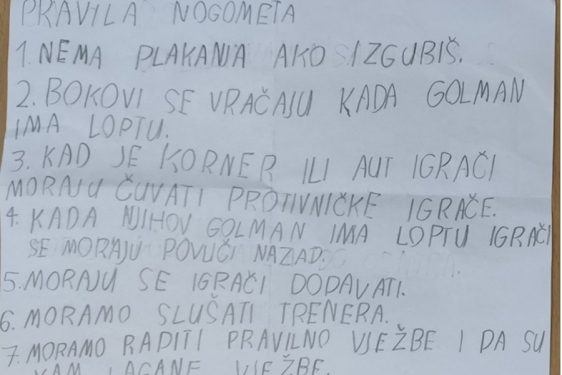 PRAVILA NOGOMETA
1. NEMA PLAKANJA AKO IZGUBIŠ.
2. BOKOVI SE VRAČAJU KADA GOLMAN
IMA LOPTU.
3. KAD JE KORNER ILI AUT IGRAČI
MORAJU ČUVATI PROTIVNIČKE IGRAČE.
4. KADA NJIHOV GOLMAN IMA LOPTU IGRAČI
SE MORAJU POVUČI NAZAD.
5. MORAJU SE IGRAČI DODAVATI.
6. MORAMO SLUŠATI TRENERA.
7. MORAMO RADITI PRAVILNO VJEŽBE I DA SU
VAM LAGANE VJEŽBE.